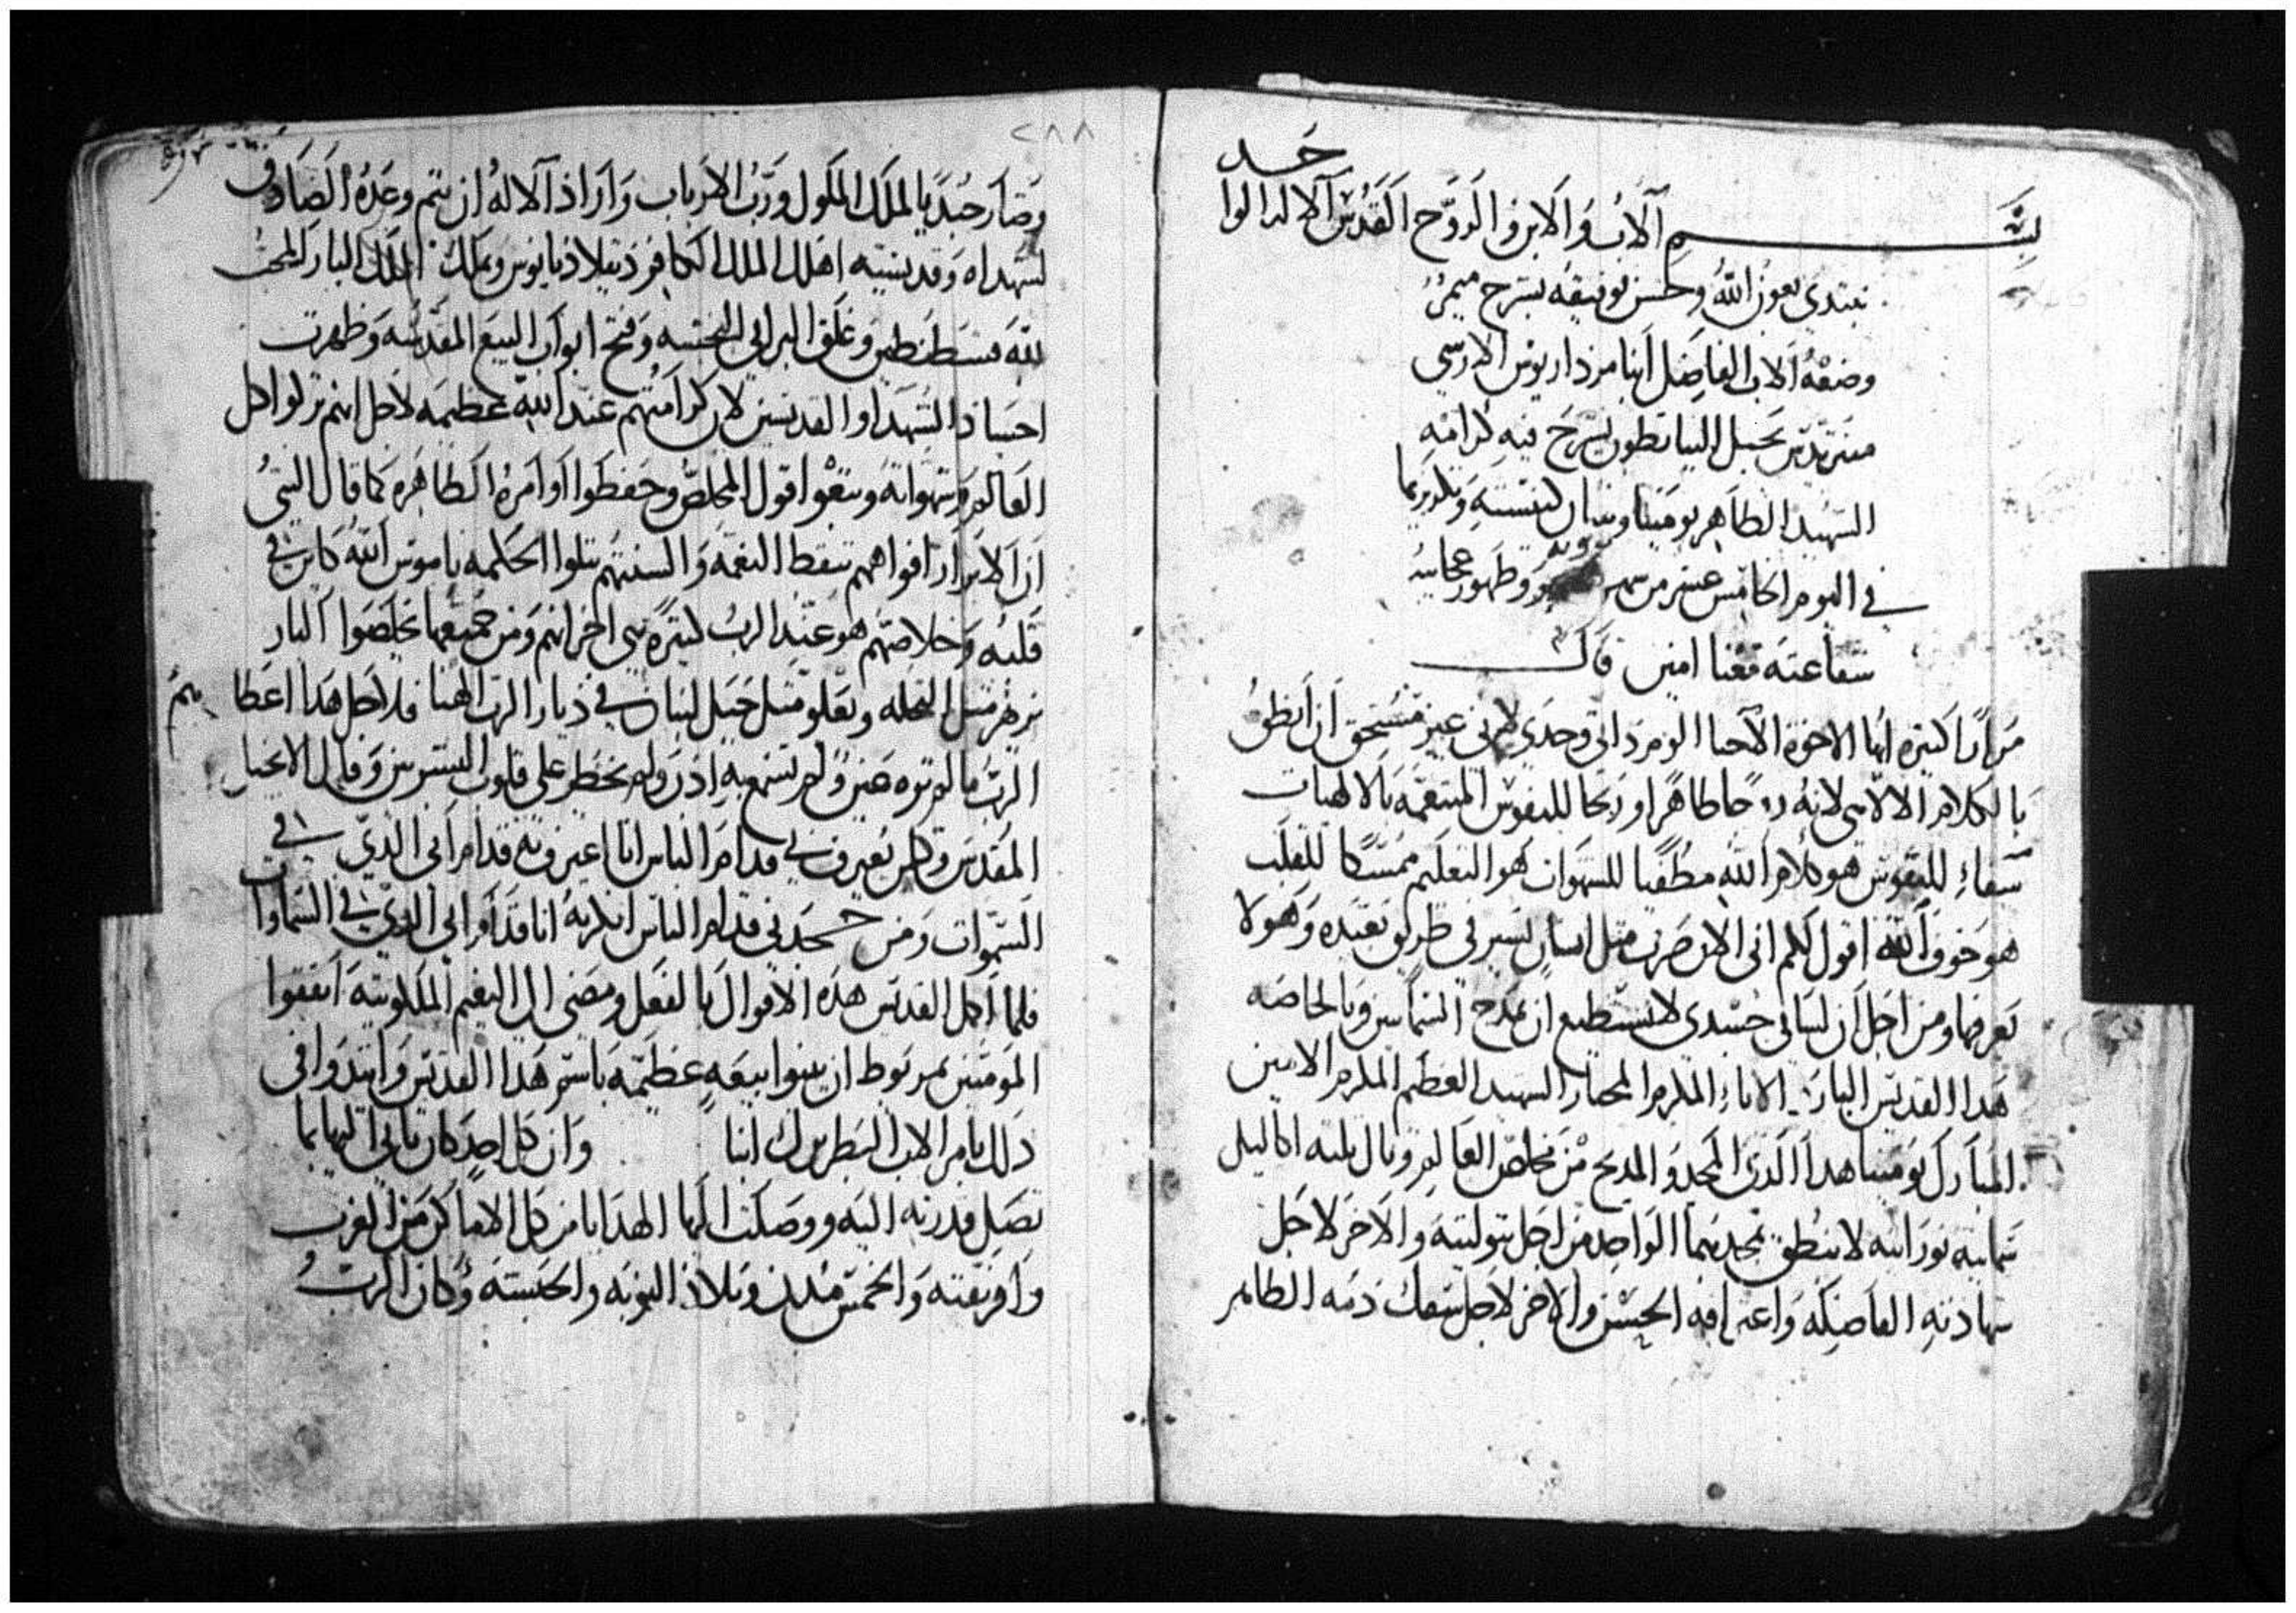 بسم الاب والابن والروح القدس الاله الواحد
نبتدي بعون الله وحسن توفيقه بشرح ميمر
وضعه الاب الفاضل انبا مرداريوس الارسي
بجبل البيانطون يشرح فيه كرامة
الشهيد الطاهر بومينا وبنيان كنيسته
في اليوم الخامس عشر من شهر وظهور عجايبه
شفاعته معنا امين قال
مرارا كثيره ايها الاخوة الاحبا الوم ذاتي وحدي لانني غير مستحق ان انطق
بالكلام الالاهي لانه طاهرا وربحا للنفوس المتنعمه بالالهيات
شفاءِ للنفوس هو كلام الله مطفيا للشهوات هو التعليم ممسكا للقلب
هو خوف الله اقول لكم اني الان صرت مثل انسان يسير في طريق بعيده وهو لا
يعرفها ومن اجل ان لساني جسدي لا يستطيع ان يمدح السمايين وبالخاصه
هذا القديس البار الاناءِ المكرم المختار الشهيد العظيم المكرم الامين
المبارك بومينا هذا الذي المجد والمديح من مخلص العالم ونال ثلثه اكاليل
سمايية نورانيه لا ينطق بمجدهما الواحد من اجل بتوليته والاخر لاجل
شهادته الفاضله واعترافه الحسن والاخر لاجل سفك دمه الطاهر
٢٨٨
وصار جنديا لملك الملوك ورب الارباب واراد الاله ان يتم وعده الصادق
لشهداه وقديسيه اهلك الملك الكافر دقلاديانوس وتملك الملك البار المحب
لله قسطنطين وغلق البرابي النجسه وفتح ابواب البيع المقدسه وظهرت
اجساد الشهدا والقديسين لان كرامتهم عند الله عظيمه لاجل انهم تركوا كل
العالم وشهواته وتبعوا قول المخلص وحفظوا اوامره الطاهره كما قال النبي
ان الابرار افواههم تنقط النعمه والسنتهم تتلوا الحكمه ناموس الله كاين في
قلبه وخلاصهم هو عند الرب كثيره هي احزانهم ومن جميعها يخلصوا البار
يزهر مثل النخله ويعلو مثل جبل لبنان في ديار الرب الهنا فلاجل هذا اعطاهم
الرب ما لم تره عين ولم تسمع به اذن ولم يخطر على قلوب البشريين وقال الانجيل
المقدس وكل من يعترف بي قدام الناس انا اعترف به قدام ابي الذي في
السموات ومن جحدني قدام الناس انكرته انا قدام ابي الذي في السماوات
فلما اكمل القديس هذه الاقوال بالفعل ومضى الى النعيم الملكوتيه اتفقوا
المومنين بمريوط ان يبنوا بيعه عظيمه باسم هذا القديس وابتدوا في
ذلك بامر الاب البطريرك انبا وان كل احد كان ياتي اليها بما
تصل قدرته اليه ووصلت اليها الهدايا من كل الاماكن من الغرب
وافريقيه والخمس مدن وبلاد النوبه والحبشه وكان الرب